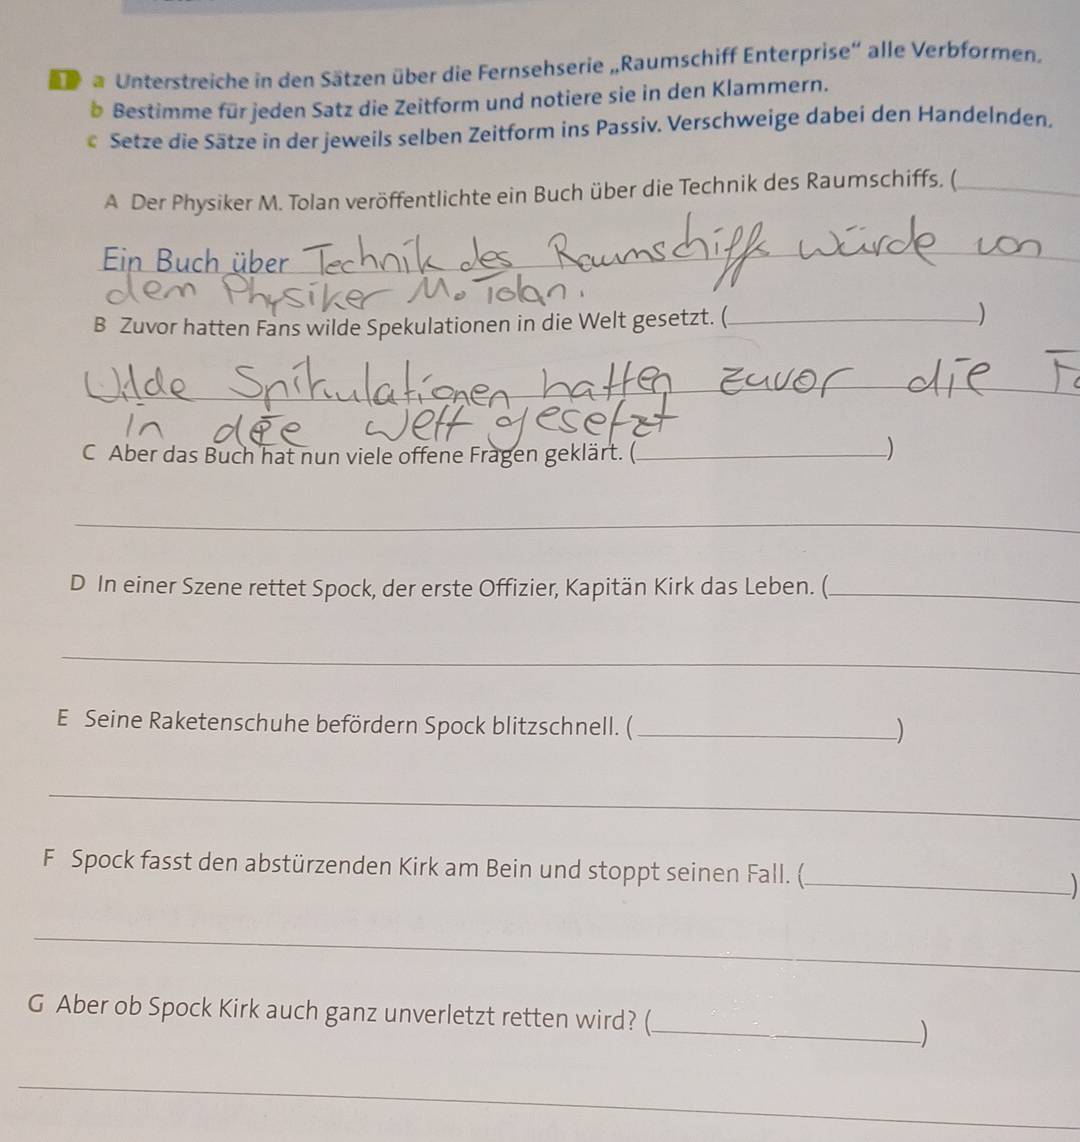 1 a Unterstreiche in den Sätzen über die Fernsehserie „Raumschiff Enterprise“ alle Verbformen.
b Bestimme für jeden Satz die Zeitform und notiere sie in den Klammern.
c Setze die Sätze in der jeweils selben Zeitform ins Passiv. Verschweige dabei den Handelnden.
A Der Physiker M. Tolan veröffentlichte ein Buch über die Technik des Raumschiffs. (
Ein Buch über Technik des Raumschiffs würde von
dem Physiker M. Tolan.
B Zuvor hatten Fans wilde Spekulationen in die Welt gesetzt. ( )
Wilde Spikulationen hatten zuvor die
in die Welt gesetzt
C Aber das Buch hat nun viele offene Fragen geklärt. ( )
D In einer Szene rettet Spock, der erste Offizier, Kapitän Kirk das Leben. (
E Seine Raketenschuhe befördern Spock blitzschnell. ( )
F Spock fasst den abstürzenden Kirk am Bein und stoppt seinen Fall. ( )
G Aber ob Spock Kirk auch ganz unverletzt retten wird? ( )